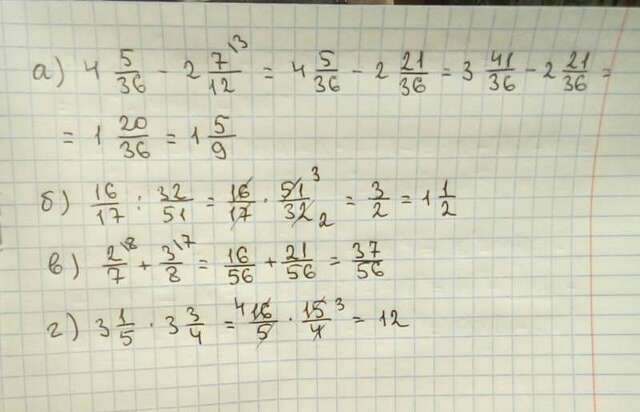 а) 4 5/36 - 2 7/12 \3 = 4 5/36 - 2 21/36 = 3 41/36 - 2 21/36 =
= 1 20/36 = 1 5/9
б) 16/17 : 32/51 = 16/17 · 51/32 3 2 = 3/2 = 1 1/2
в) 2/7 \8 + 3/8 \7 = 16/56 + 21/56 = 37/56
г) 3 1/5 · 3 3/4 = 4 16/5 · 15/4 3 = 12